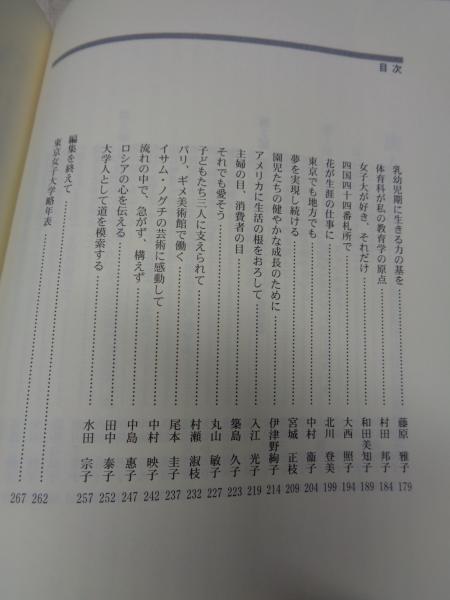 目次
乳幼児期に生きる力の基を……藤原 雅子 179
体育科が私の教育学の原点……村田 邦子 184
女子大が好き、それだけ……和田美知子 189
四国四十四番札所で……大西 照子 194
花が生涯の仕事に……北川 登美 199
東京でも地方でも……中村 衞子 204
夢を実現し続ける……宮城 正枝 209
園児たちの健やかな成長のために……伊津野絢子 214
アメリカに生活の根をおろして……入江 光子 219
主婦の目、消費者の目……築島 久子 223
それでも愛そう……丸山 敏子 227
子どもたち三人に支えられて……村瀬 淑枝 232
パリ、ギメ美術館で働く……尾本 圭子 237
イサム・ノグチの芸術に感動して……中村 映子 242
流れの中で、急がず、構えず……中島 惠子 247
ロシアの心を伝える……田中 泰子 252
大学人として道を模索する……水田 宗子 257
編集を終えて……262
東京女子大学略年表……267